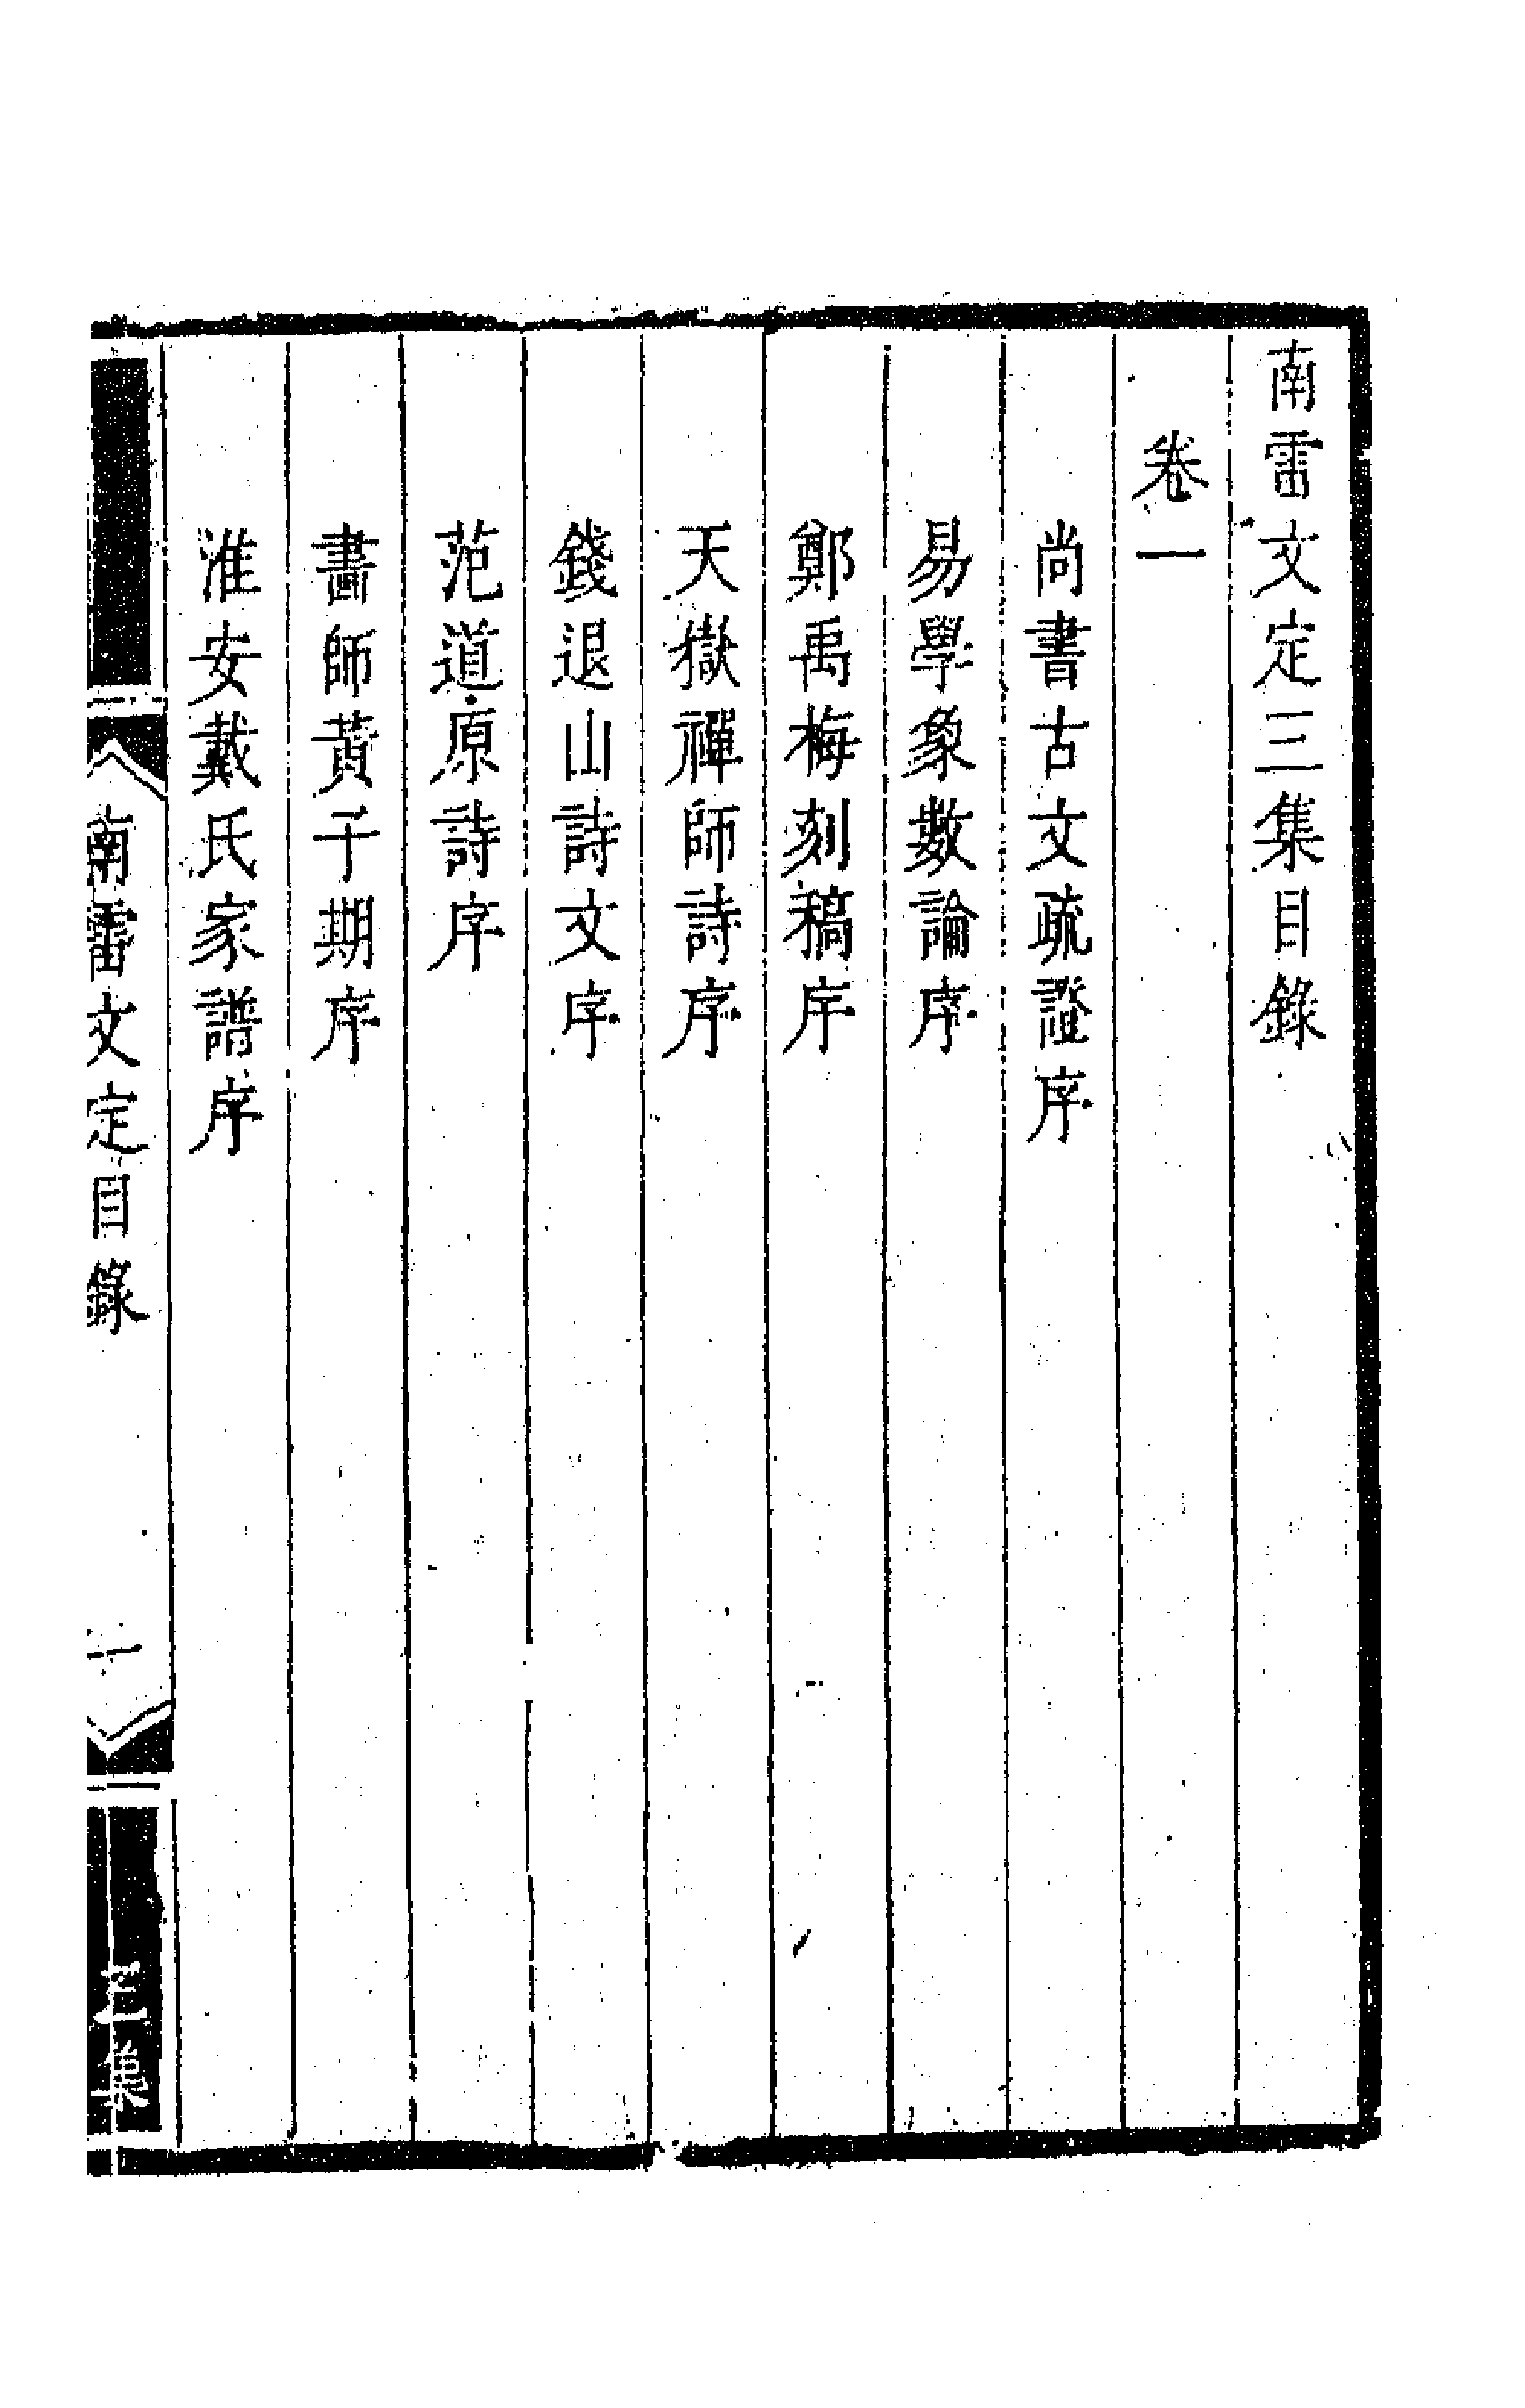 南雷文定三集目錄
卷一
尚書古文疏證序
易學象數論序
鄭禹梅刻稿序
天嶽禪師詩序
錢退山詩文序
范道原詩序
畫師黃子期序
淮安戴氏家譜序
南雷文定目錄
一
三集